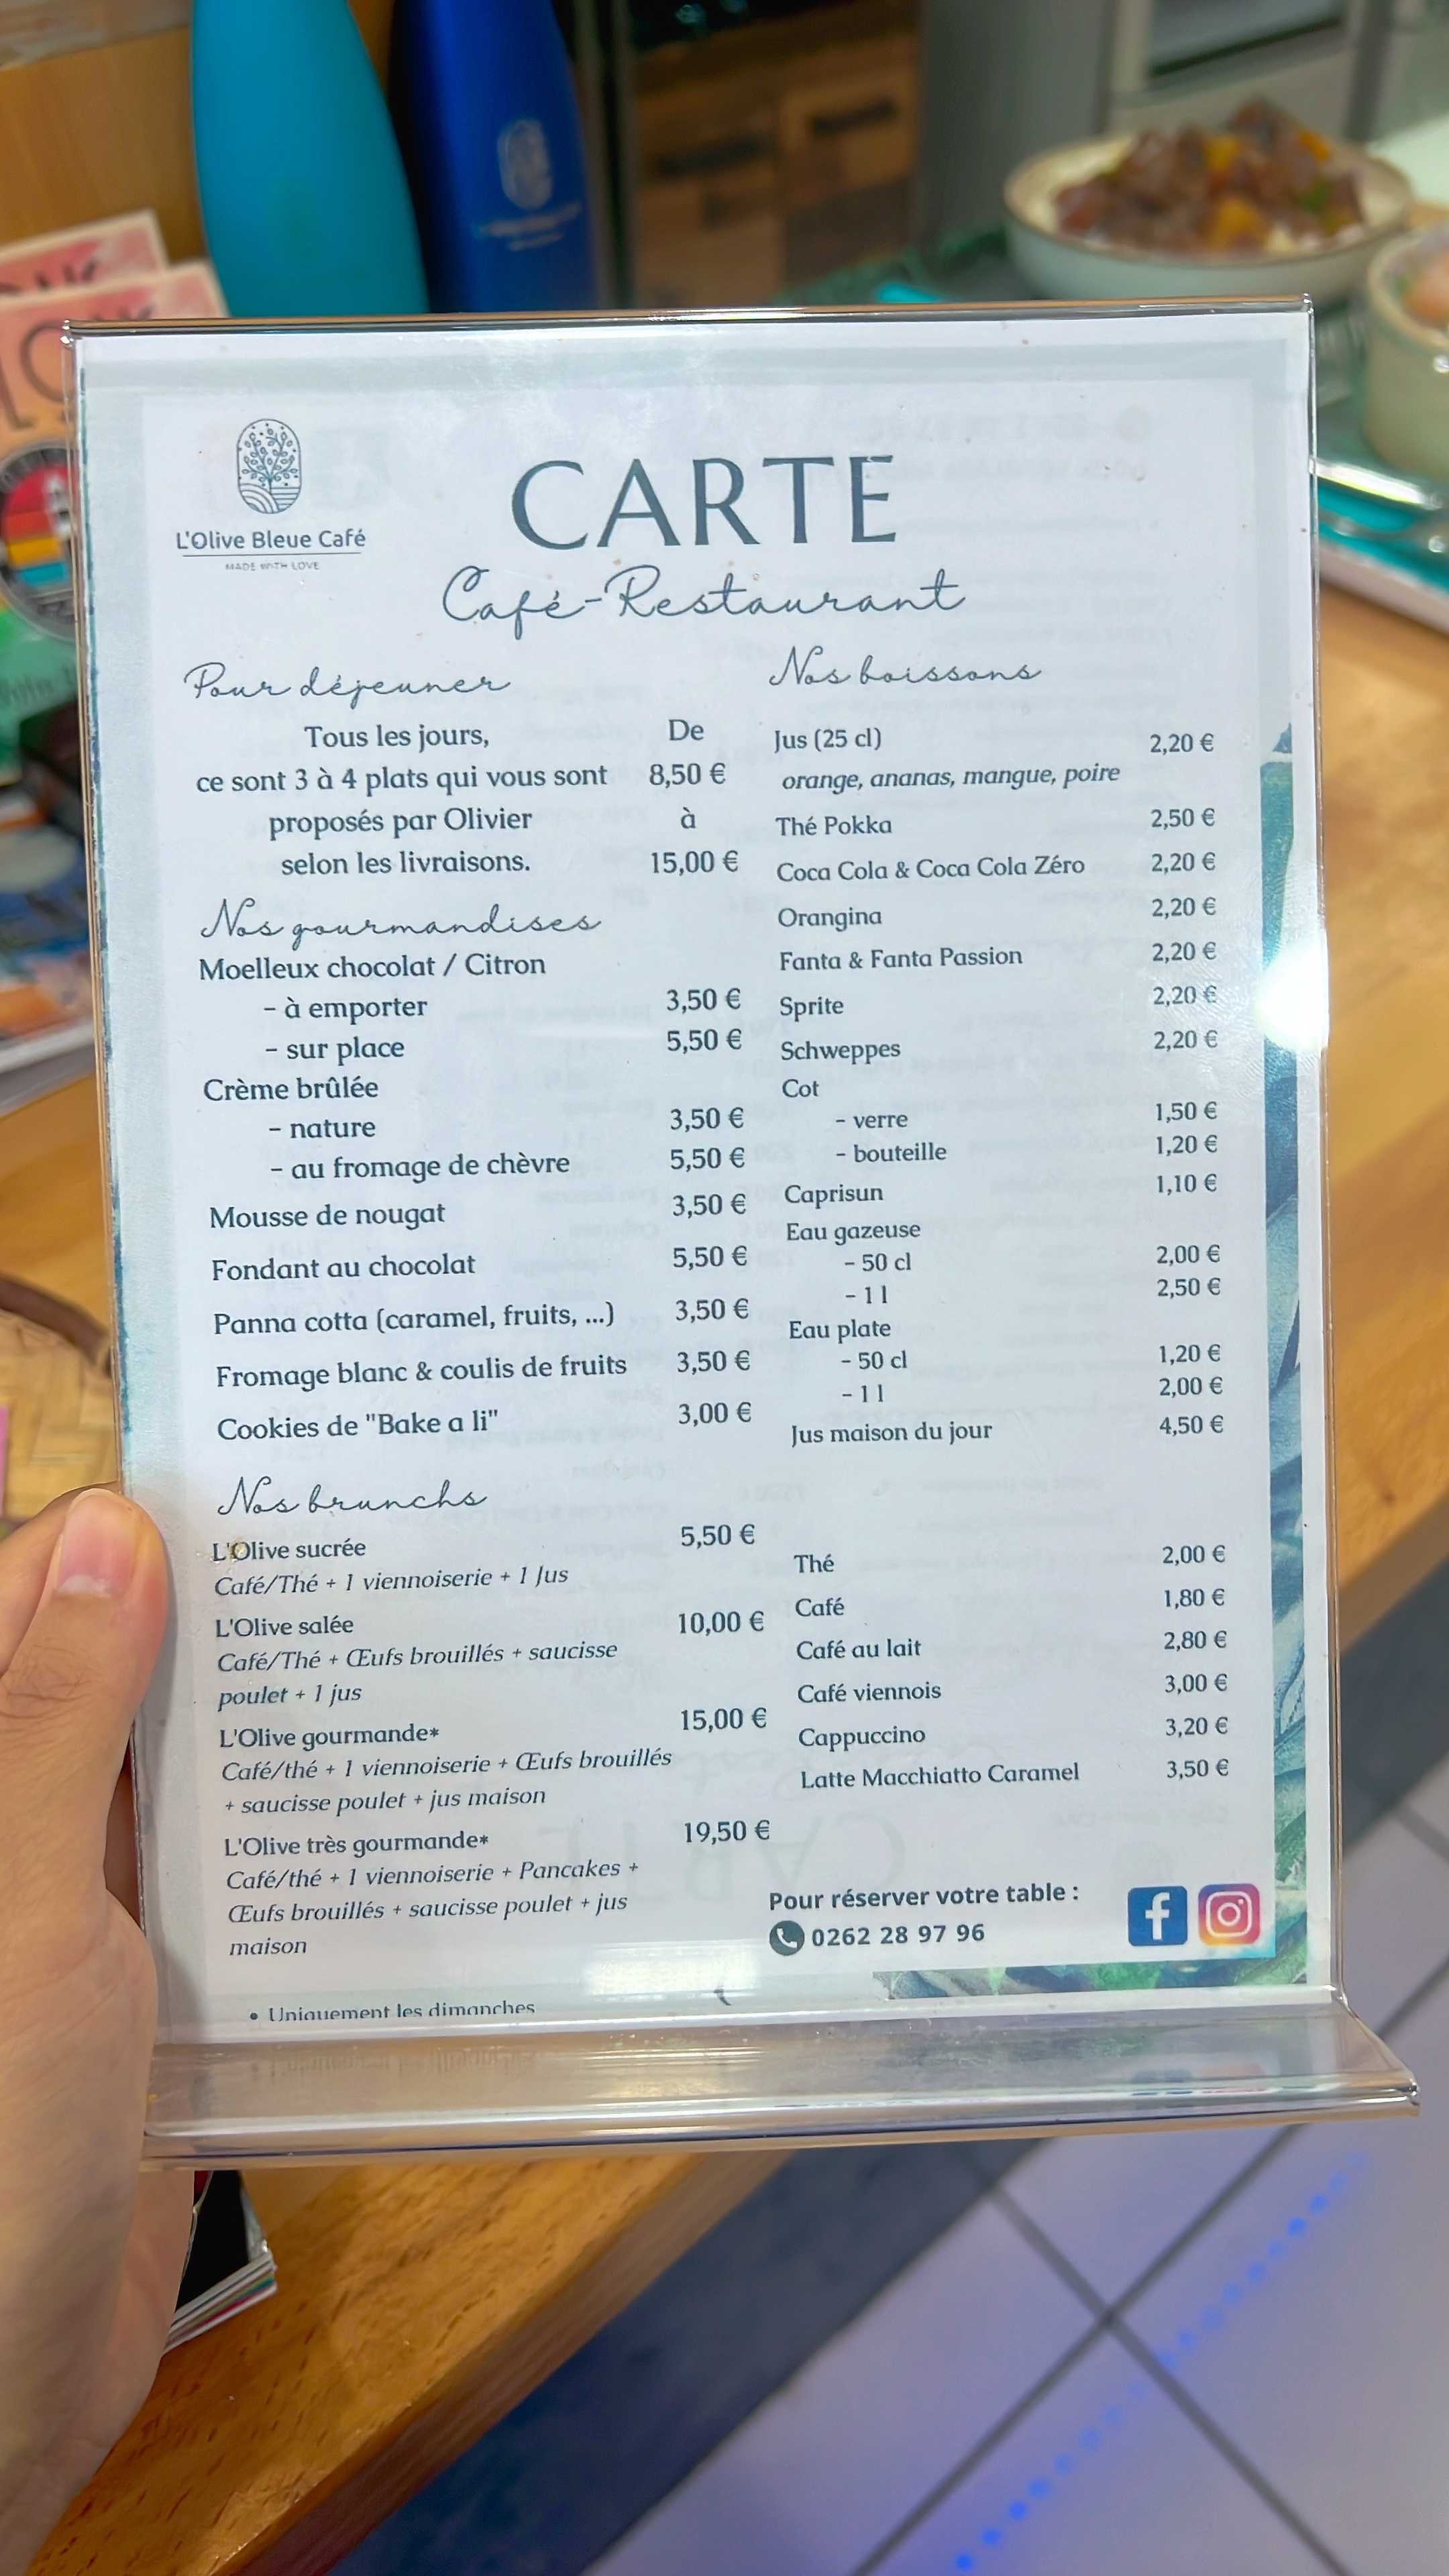 L'Olive Bleue Café
MADE WITH LOVE
CARTE
Café-Restaurant
Pour déjeuner
Tous les jours,
ce sont 3 à 4 plats qui vous sont
proposés par Olivier
selon les livraisons.
De
8,50 €
à
15,00 €
Nos gourmandises
Moelleux chocolat / Citron
- à emporter 3,50 €
- sur place 5,50 €
Crème brûlée
- nature 3,50 €
- au fromage de chèvre 5,50 €
Mousse de nougat 3,50 €
Fondant au chocolat 5,50 €
Panna cotta (caramel, fruits, ...) 3,50 €
Fromage blanc & coulis de fruits 3,50 €
Cookies de "Bake a li" 3,00 €
Nos brunchs
L'Olive sucrée 5,50 €
Café/Thé + 1 viennoiserie + 1 Jus
L'Olive salée 10,00 €
Café/Thé + Œufs brouillés + saucisse
poulet + 1 jus
L'Olive gourmande* 15,00 €
Café/thé + 1 viennoiserie + Œufs brouillés
+ saucisse poulet + jus maison
L'Olive très gourmande* 19,50 €
Café/thé + 1 viennoiserie + Pancakes +
Œufs brouillés + saucisse poulet + jus
maison
• Uniquement les dimanches
Nos boissons
Jus (25 cl) 2,20 €
orange, ananas, mangue, poire
Thé Pokka 2,50 €
Coca Cola & Coca Cola Zéro 2,20 €
Orangina 2,20 €
Fanta & Fanta Passion 2,20 €
Sprite 2,20 €
Schweppes 2,20 €
Cot
- verre 1,50 €
- bouteille 1,20 €
Caprisun 1,10 €
Eau gazeuse
- 50 cl 2,00 €
- 1 l 2,50 €
Eau plate
- 50 cl 1,20 €
- 1 l 2,00 €
Jus maison du jour 4,50 €
Thé 2,00 €
Café 1,80 €
Café au lait 2,80 €
Café viennois 3,00 €
Cappuccino 3,20 €
Latte Macchiatto Caramel 3,50 €
Pour réserver votre table :
0262 28 97 96